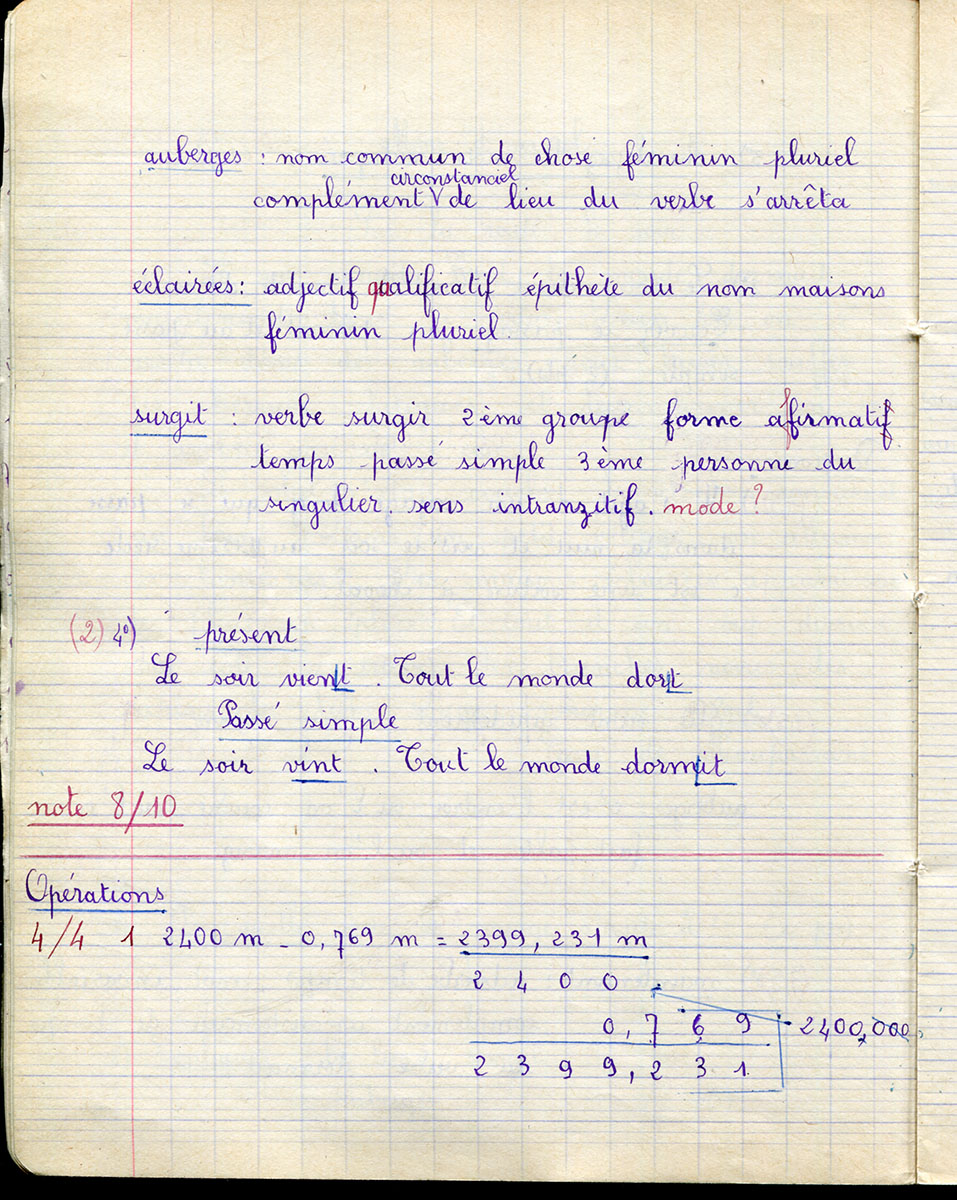 auberges : nom commun de chose féminin pluriel
circonstanciel
complément V de lieu du verbe s'arrêta
éclairées : adjectif qualificatif épithète du nom maisons
féminin pluriel.
surgit : verbe surgir 2ème groupe forme affirmatif
temps passé simple 3ème personne du
singulier. sens intranzitif. mode ?
(2) 4°) présent
Le soir vient. Tout le monde dort
Passé simple
Le soir vint. Tout le monde dormit
note 8/10
Opérations
4/4 1 2400 m - 0,769 m = 2399,231 m
2 4 0 0
0,7 6 9 2400,000
2 3 9 9,2 3 1